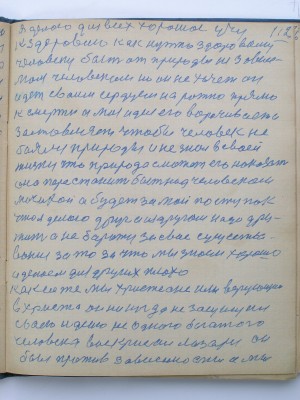 я делаю для всех хорошое учу 1122
к здоровью как нужно здоровому
человеку быть от природы не завис-
мым человеком но он не хочет он
идет своим сердцем на рожно прямо
к смерти а мы идем его ворачивать
заставлять чтобы человек не
боялся природы и не знал в своей
жизни что природа сможет его наказать
она перестанет быть над человеком
а будет за мой поступок
что я делаю друг а и другом надо дру-
жить а не бороться за свое существо-
вание за то за что мы знаем хорошо
и делаем для других плохо
как есть мы христиане или верующие
в Христа он никогда не защищал
свою идею не одного богатого
человека воскресил Лазаря он
был против зависимости а мы